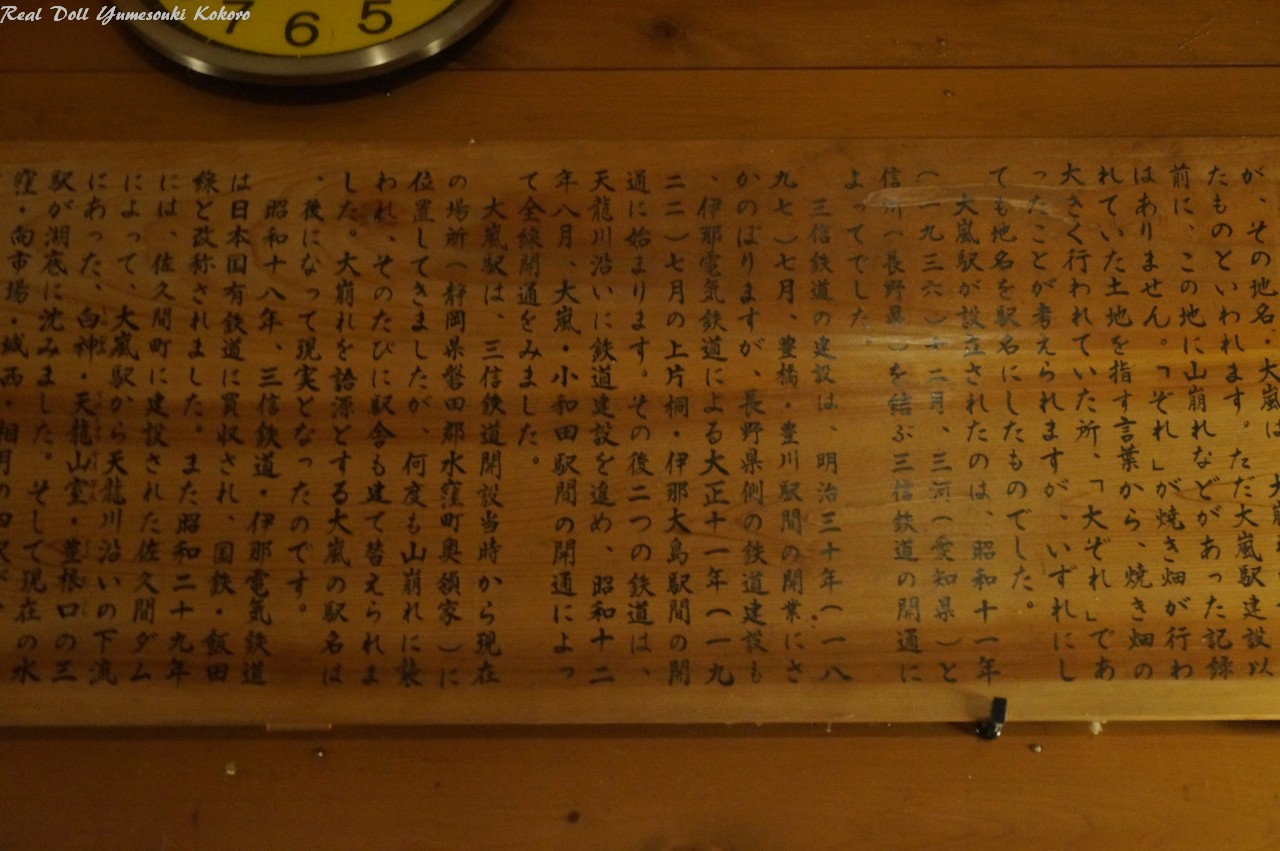 Real Doll Yumesouki Kokoro
7 6 5
が、その地名・大嵐は
たものといわれます。ただ大嵐駅建設以
前に、この地に山崩れなどがあった記録
はありません。「ぞれ」が焼き畑が行わ
れていた土地を指す言葉から、焼き畑の
大きく行われていた所、「大ぞれ」であ
ったことが考えられますが、いずれにし
ても地名を駅名にしたものでした。
大嵐駅が設立されたのは、昭和十一年
(一九三六)十二月、三河(愛知県)と
信州(長野県)を結ぶ三信鉄道の開通に
よってでした。
三信鉄道の建設は、明治三十年(一八
九七)七月、豊橋・豊川駅間の開業にさ
かのぼりますが、長野県側の鉄道建設も
、伊那電気鉄道による大正十一年(一九
二二)七月の上片桐・伊那大島駅間の開
通に始まります。その後二つの鉄道は、
天龍川沿いに鉄道建設を進め、昭和十二
年八月、大嵐・小和田駅間の開通によっ
て全線開通をみました。
大嵐駅は、三信鉄道開設当時から現在
の場所(静岡県磐田郡水窪町奥領家)に
位置してきましたが、何度も山崩れに襲
われ、そのたびに駅舎も建て替えられま
した。大崩れを語源とする大嵐の駅名は
、後になって現実となったのです。
昭和十八年、三信鉄道・伊那電気鉄道
は日本国有鉄道に買収され、国鉄・飯田
線と改称されました。また昭和二十九年
には、佐久間町に建設された佐久間ダム
によって、大嵐駅から天龍川沿いの下流
にあった、白神・天龍山室・豊根口の三
駅が湖底に沈みました。そして現在の水
窪・向市場・城西・相月の四駅が、